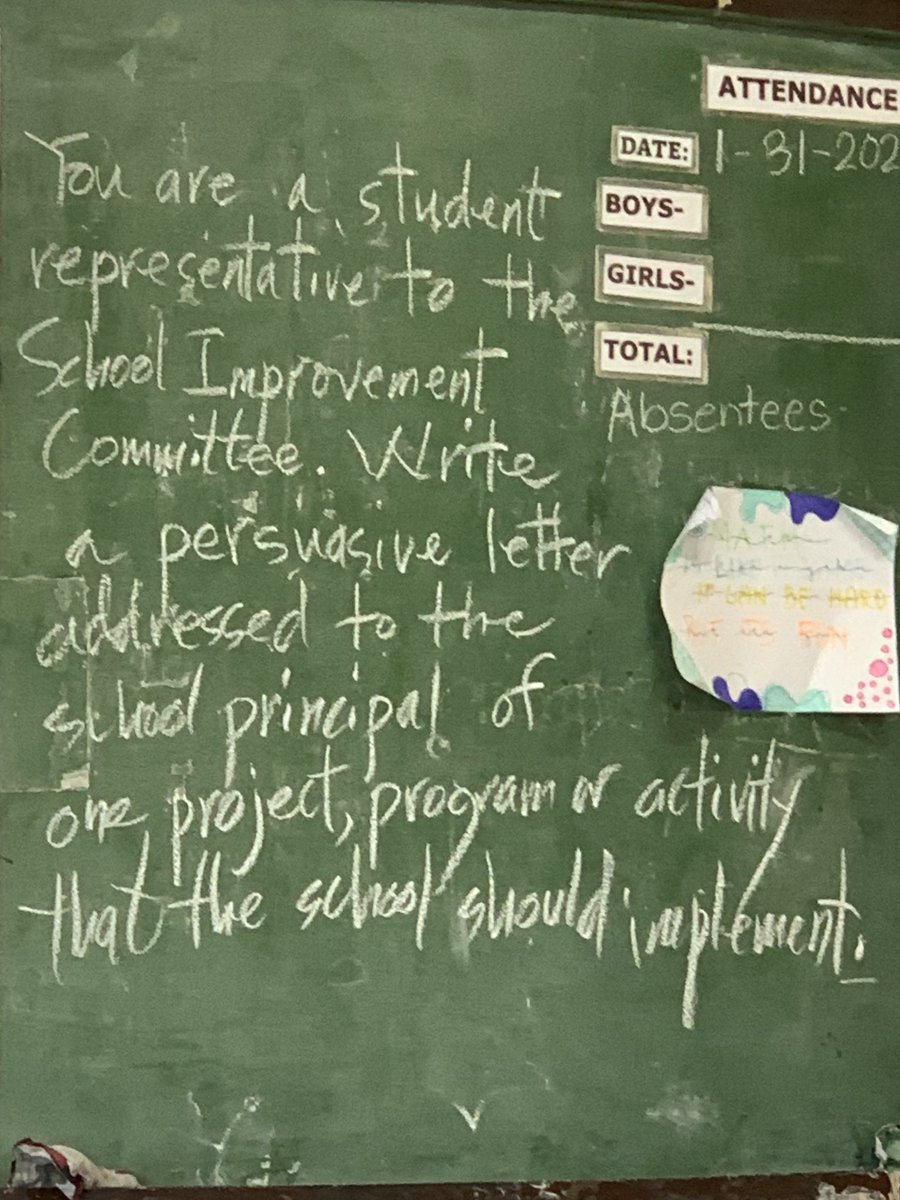 You are a student
representative to the
School Improvement
Committee. Write
a persuasive letter
addressed to the
school principal of
one project, program or activity
that the school should implement.
ATTENDANCE
DATE: 1-31-202
BOYS-
GIRLS-
TOTAL:
Absentees-
IT CAN BE HARD
But its